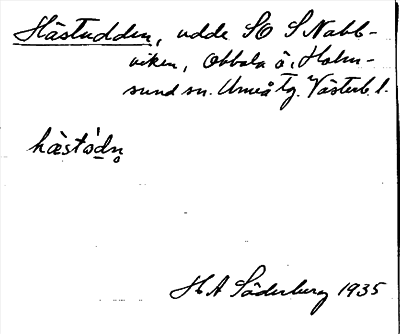 Hästudden, udde SO S Nabb-
viken, Obbola ö, Holm-
sund sn. Umeå tg. Västerb. l.
hàstó̱dn̥
H A Söderberg 1935